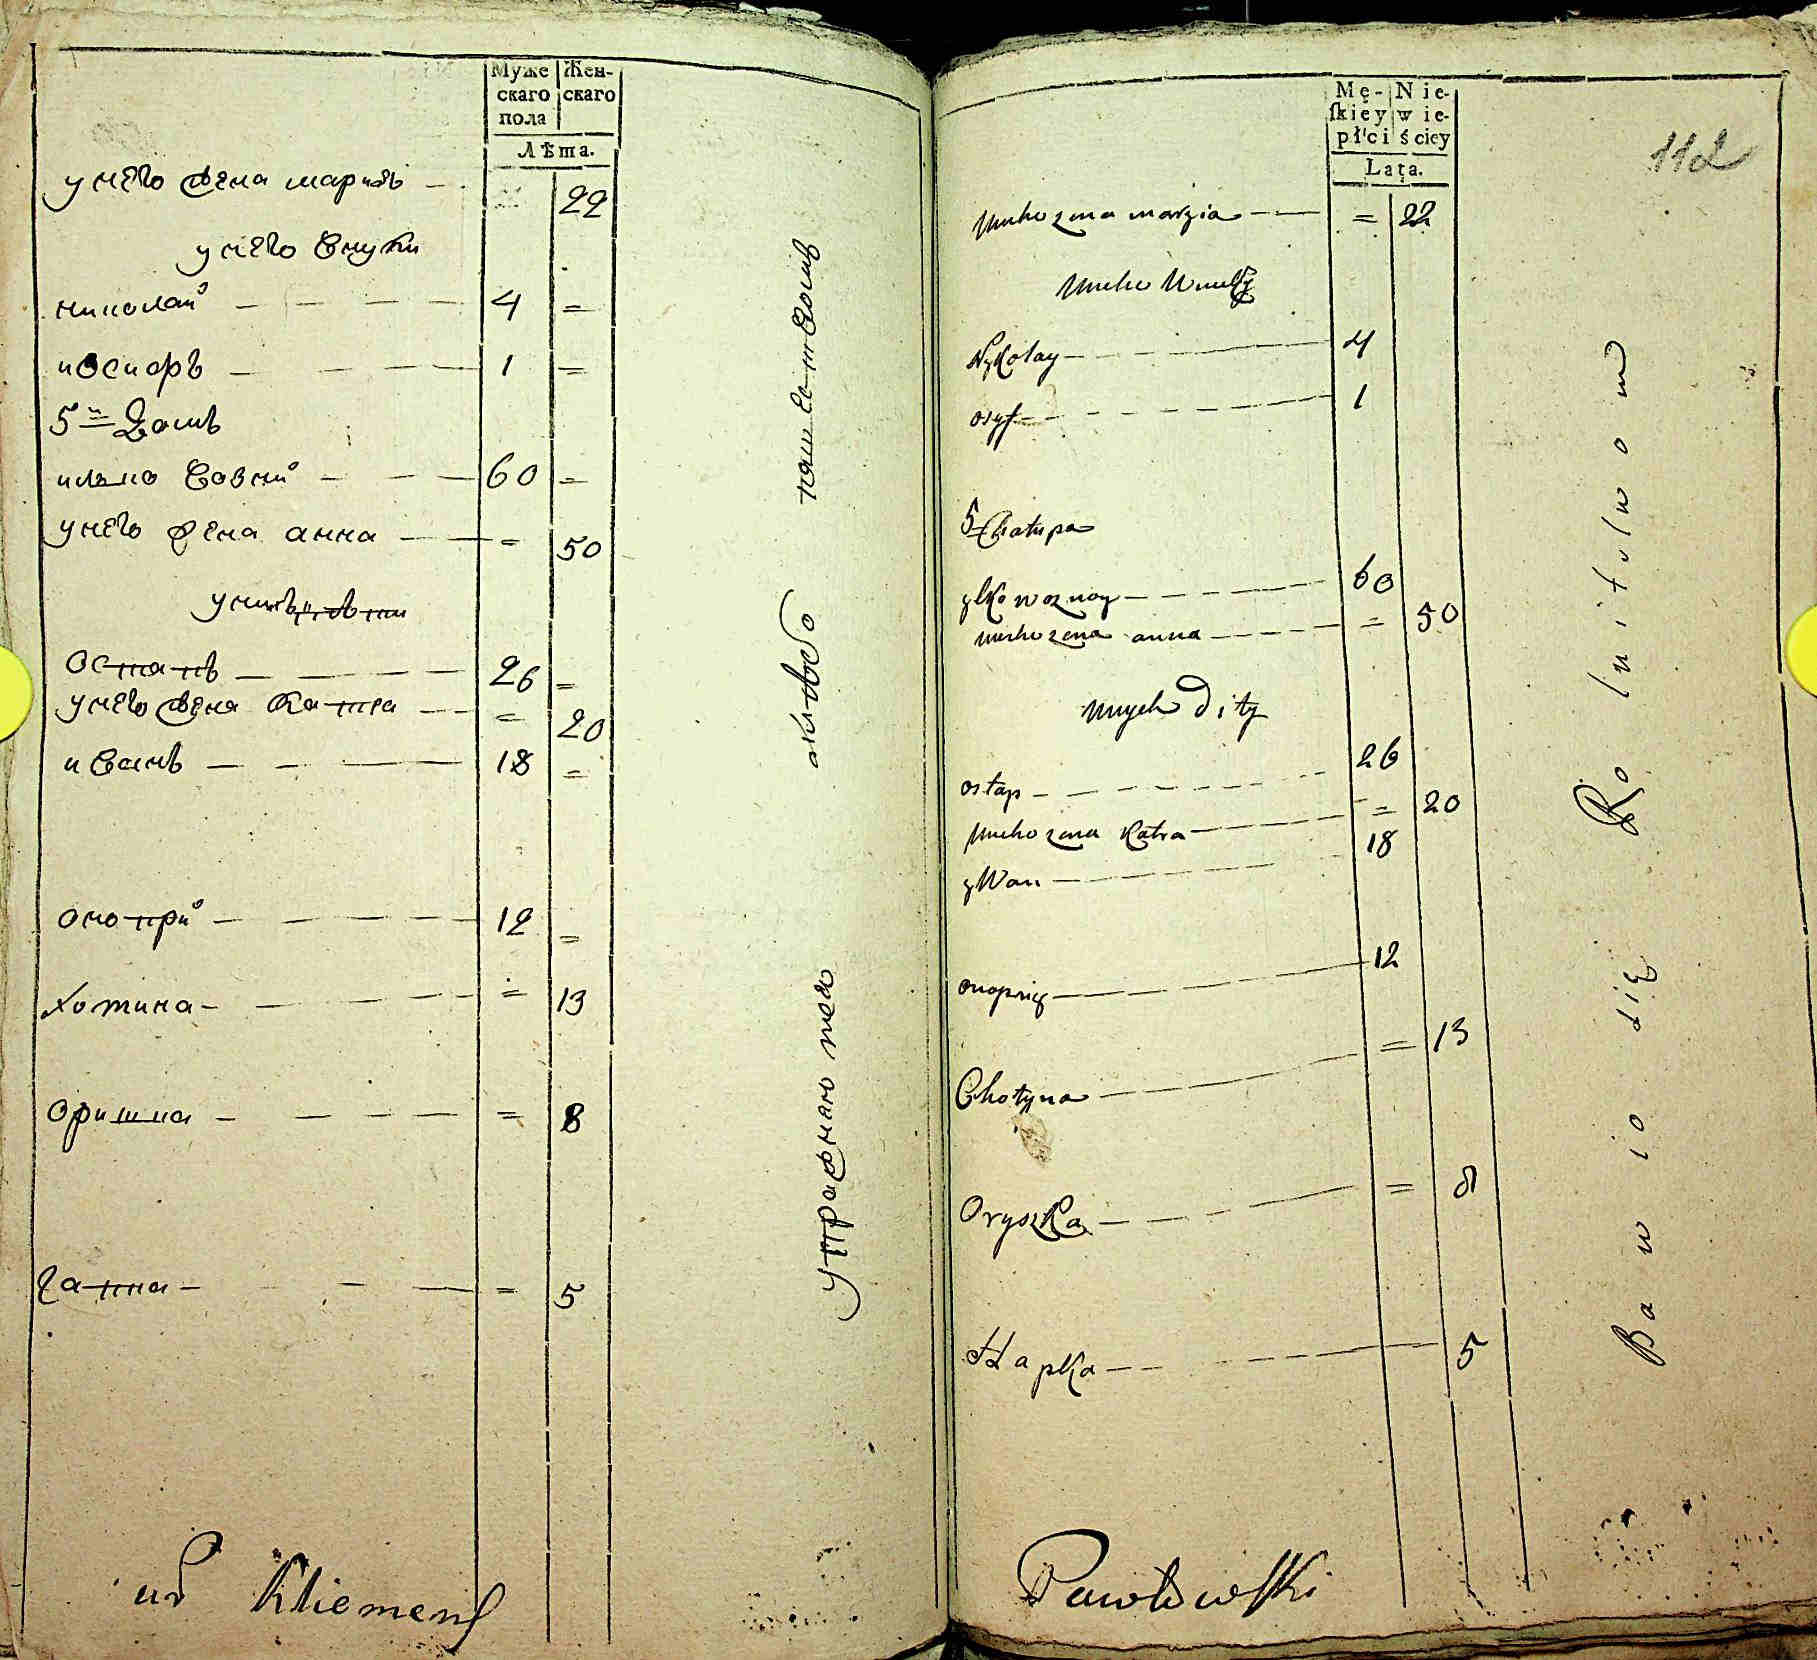 Муже
скаго
пола
Жен-
скаго
Лѣта.
у него жена мария — 22
у него внуки
николай — 4 =
иосифъ — 1 =
5й домъ
илько возни — 60 =
у него жена анна — = 50
у нихъ дѣти
остапъ — 26 =
у него жена катра — = 20
иванъ — 18 =
онопри — 12 =
хотина — = 13
оришка — = 8
гапка — = 5
живо
Mę-
ſkiéy
płci
Nie-
wie-
ściey
Lata.
112
uneho zena maryia — = 22
uneho Wnuky
Nykolay — 4
osyf — 1
5 Chatupa
ylko woznoy — 60
uneho zena anna — = 50
unych Dity
ostap — 26
uneho zena Katra — = 20
yWan — 18
onopriy — 12
Chotyna — = 13
Oryszka — = 8
Hapka — 5
Kliemens
Pawłowſki